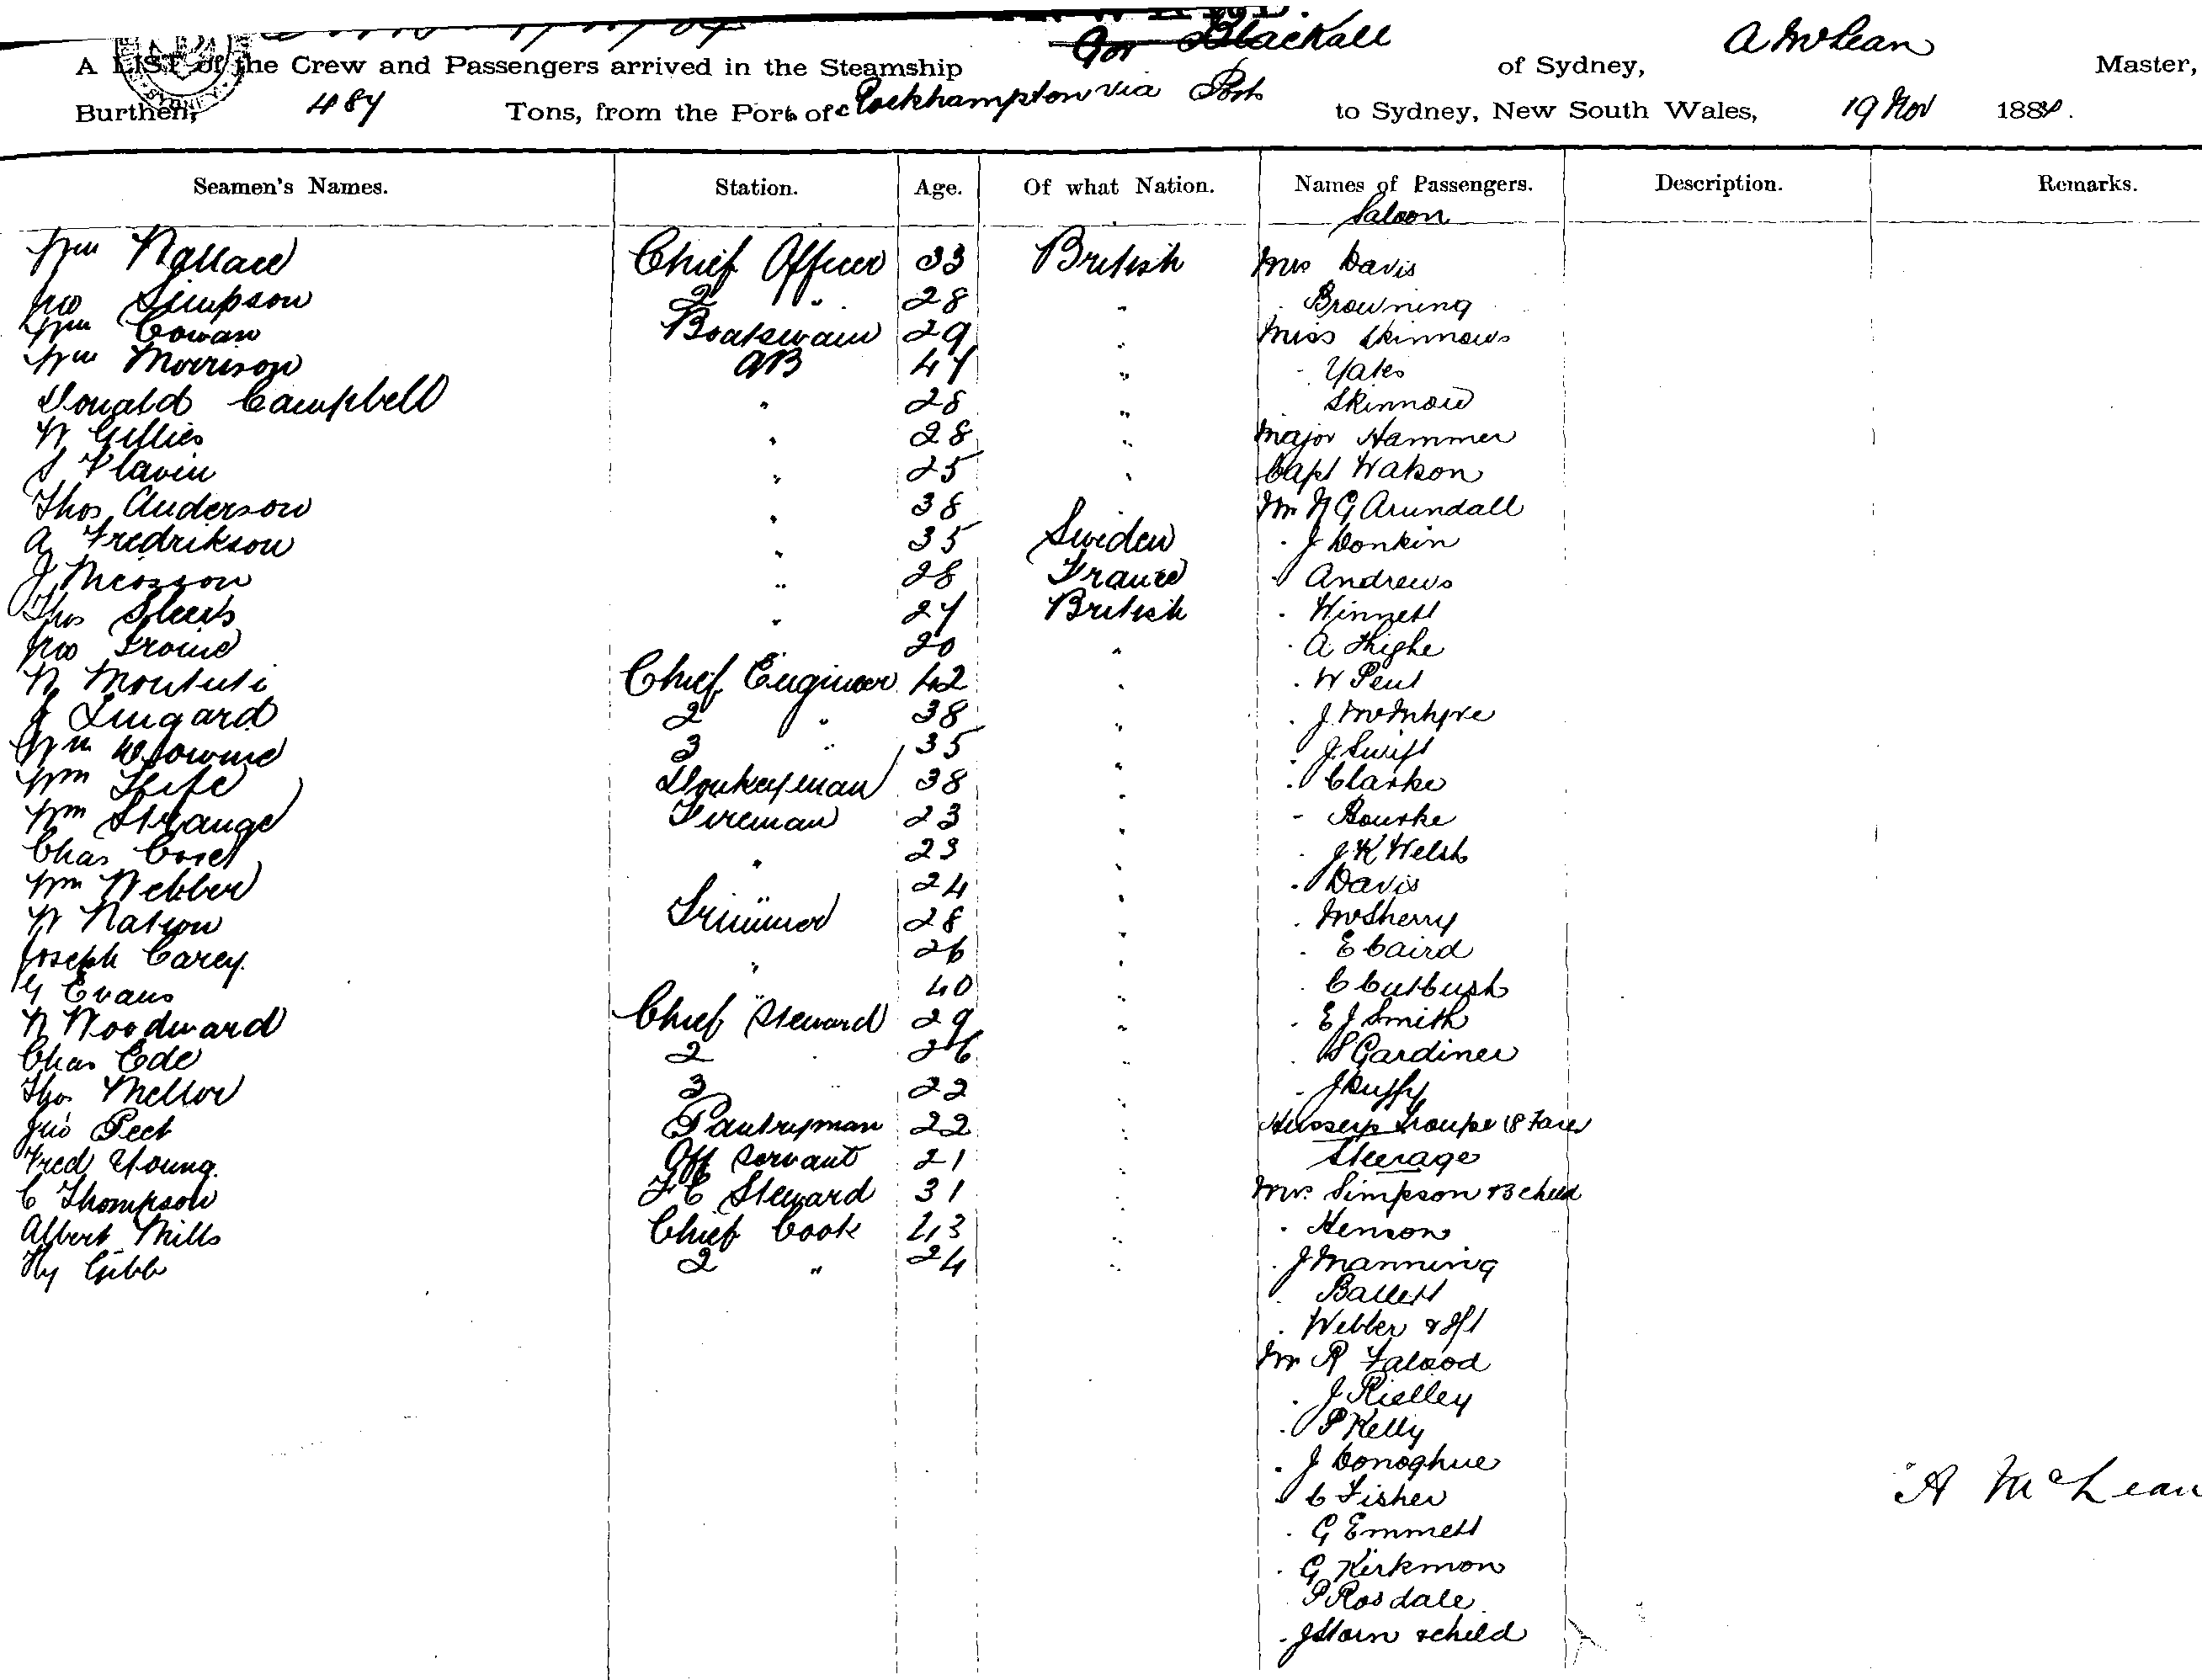 Gov Blackall
A McLean
A LIST of the Crew and Passengers arrived in the Steamship of Sydney, Master,
Burthen, 487 Tons, from the Port of Rockhampton via Ports to Sydney, New South Wales, 19 Nov 1884.
Seamen's Names. Station. Age. Of what Nation. Names of Passengers. Description. Remarks.
Saloon
Wm Wallace Chief Officer 33 British Mrs Davis
Jno Simpson 2 " 28 " Browning
Wm Cowan Boatswain 29 " Miss Skinnows
Wm Morrison AB 47 " Yates
Donald Campbell " 28 " Skinnow
W Gillies " 28 " Major Hammer
S Flavin " 25 " Capt Watson
Thos Anderson " 38 Mr W G Arundall
A Fredrikson " 35 Sweden " J Donkin
J " 28 France " Andrews
Thos " 27 British " Winnett
Jno Irvine " 20 " " A Thighe
W Chief Engineer 42 " " W Pent
J Lingard 2 " 38 " " J McIntyre
Wm Downie 3 " 35 " " J Swift
Wm Fife Donkeyman 38 " " Clarke
Wm Strange Fireman 23 " " Bourke
Chas " 23 " " J K Welsh
Wm Webber " 24 " " Davis
W Nation Trimmer 28 " " McSherry
Joseph Carey " 26 " " E Caird
G Evans " 40 " " C Cutbush
W Woodward Chief Steward 29 " " E J Smith
Chas Ede 2 " 26 " " S Gardiner
Thos Mellor 3 " 22 " " J Duffy
Jno Peet Pantryman 22 " Hussey's Troupe 18 Fares
Fred Young Off Servant 21 " Steerage
C Thompson F C Steward 31 " Mrs Simpson & 3 child
Albert Mills Chief Cook 43 " " Henson
Hy Gibb 2 " 24 " " J Manning
" Ballett
" Webber & Inft
Mr R
" J Rielley
" P Kelly
" J Donoghue
" C Fisher
A McLean
" G Emmett
" G Kirkmon
" P Rosdale
" J Storn & child